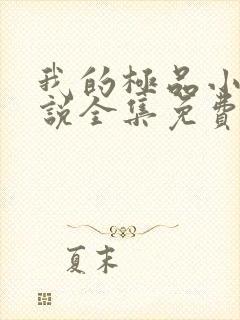 我的極品小
說全集免費
夏末